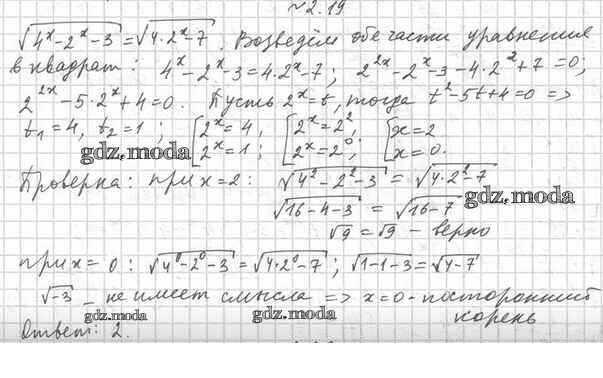 № 2.19
√(4ˣ-2ˣ-3) = √(4·2ˣ-7). Возведём обе части уравнения
в квадрат: 4ˣ-2ˣ-3=4·2ˣ-7; 2²ˣ-2ˣ-3-4·2ˣ+7=0;
2²ˣ-5·2ˣ+4=0. Пусть 2ˣ=t, тогда t²-5t+4=0 =>
t₁=4, t₂=1; [2ˣ=4, [2ˣ=2², [x=2
gdz.moda [2ˣ=1; [2ˣ=2⁰; [x=0.
Проверка: при x=2: √(4²-2²-3) = √(4·2²-7)
gdz.moda
√(16-4-3) = √(16-7)
√9=√9 - верно
при x=0: √(4⁰-2⁰-3)=√(4·2⁰-7); √(1-1-3)=√(4-7)
√-3 - не имеет смысла => x=0-посторонний
gdz.moda gdz.moda корень
Ответ: 2.